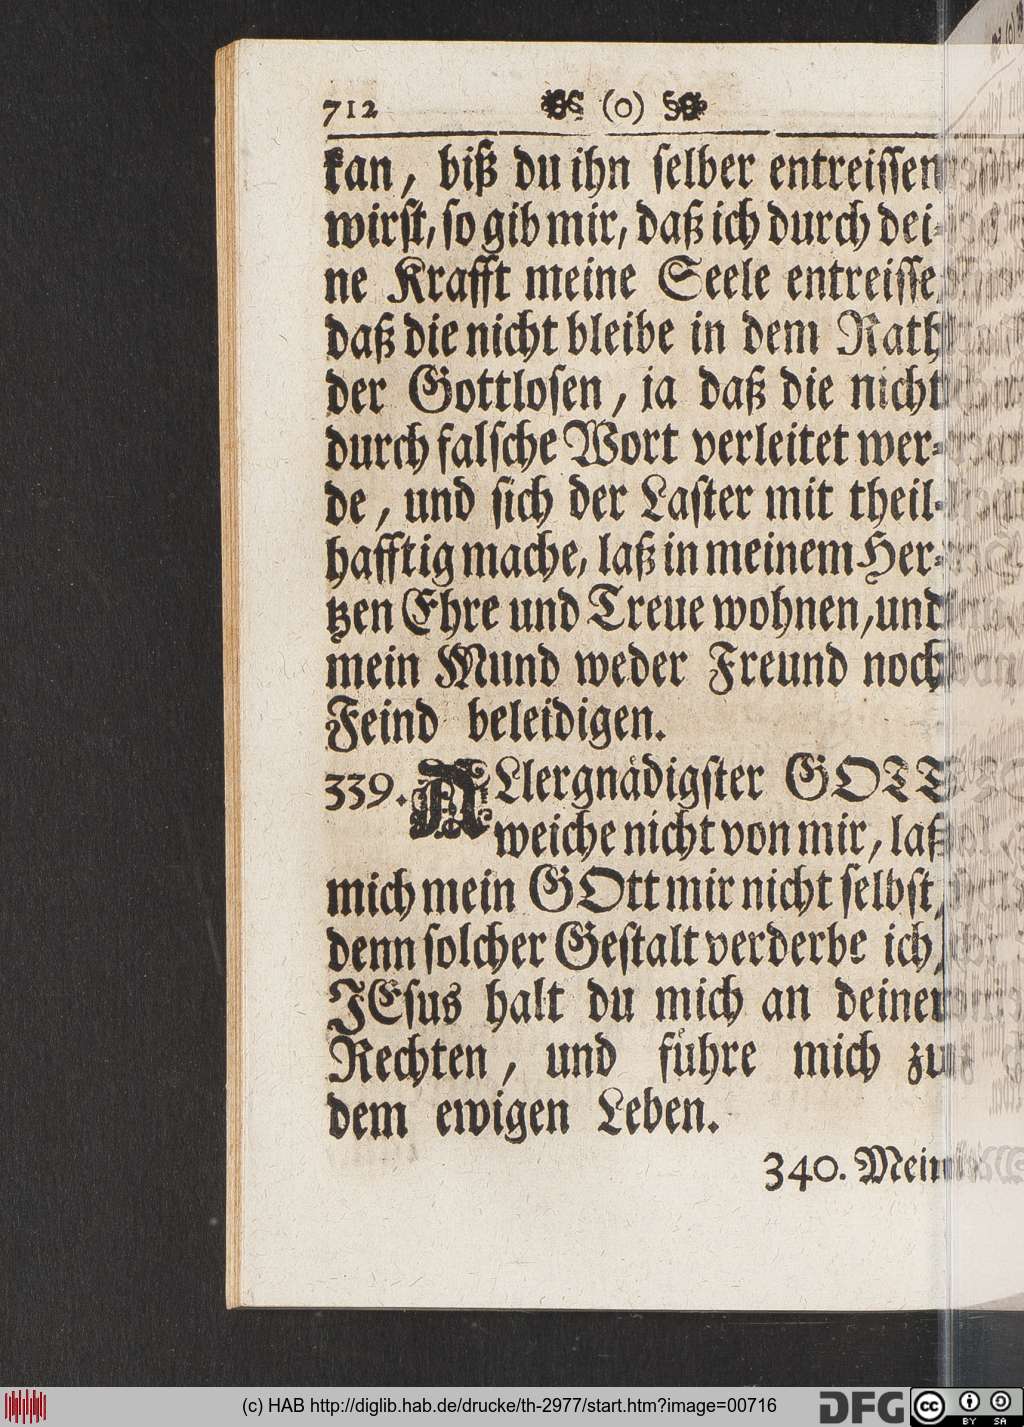 712 (o)
kan, biß du ihn selber entreissen
wirst, so gib mir, daß ich durch dei-
ne Krafft meine Seele entreisse,
daß die nicht bleibe in dem Rath
der Gottlosen, ja daß die nicht
durch falsche Wort verleitet wer-
de, und sich der Laster mit theil-
hafftig mache, laß in meinem Her-
tzen Ehre und Treue wohnen, und
mein Mund weder Freund noch
Feind beleidigen.
339. ALlergnädigster GOTT
weiche nicht von mir, laß
mich mein GOtt mir nicht selbst,
denn solcher Gestalt verderbe ich,
JEsus halt du mich an deiner
Rechten, und führe mich zu
dem ewigen Leben.
340. Mein
(c) HAB http://diglib.hab.de/drucke/th-2977/start.htm?image=00716
DFG
cc BY SA